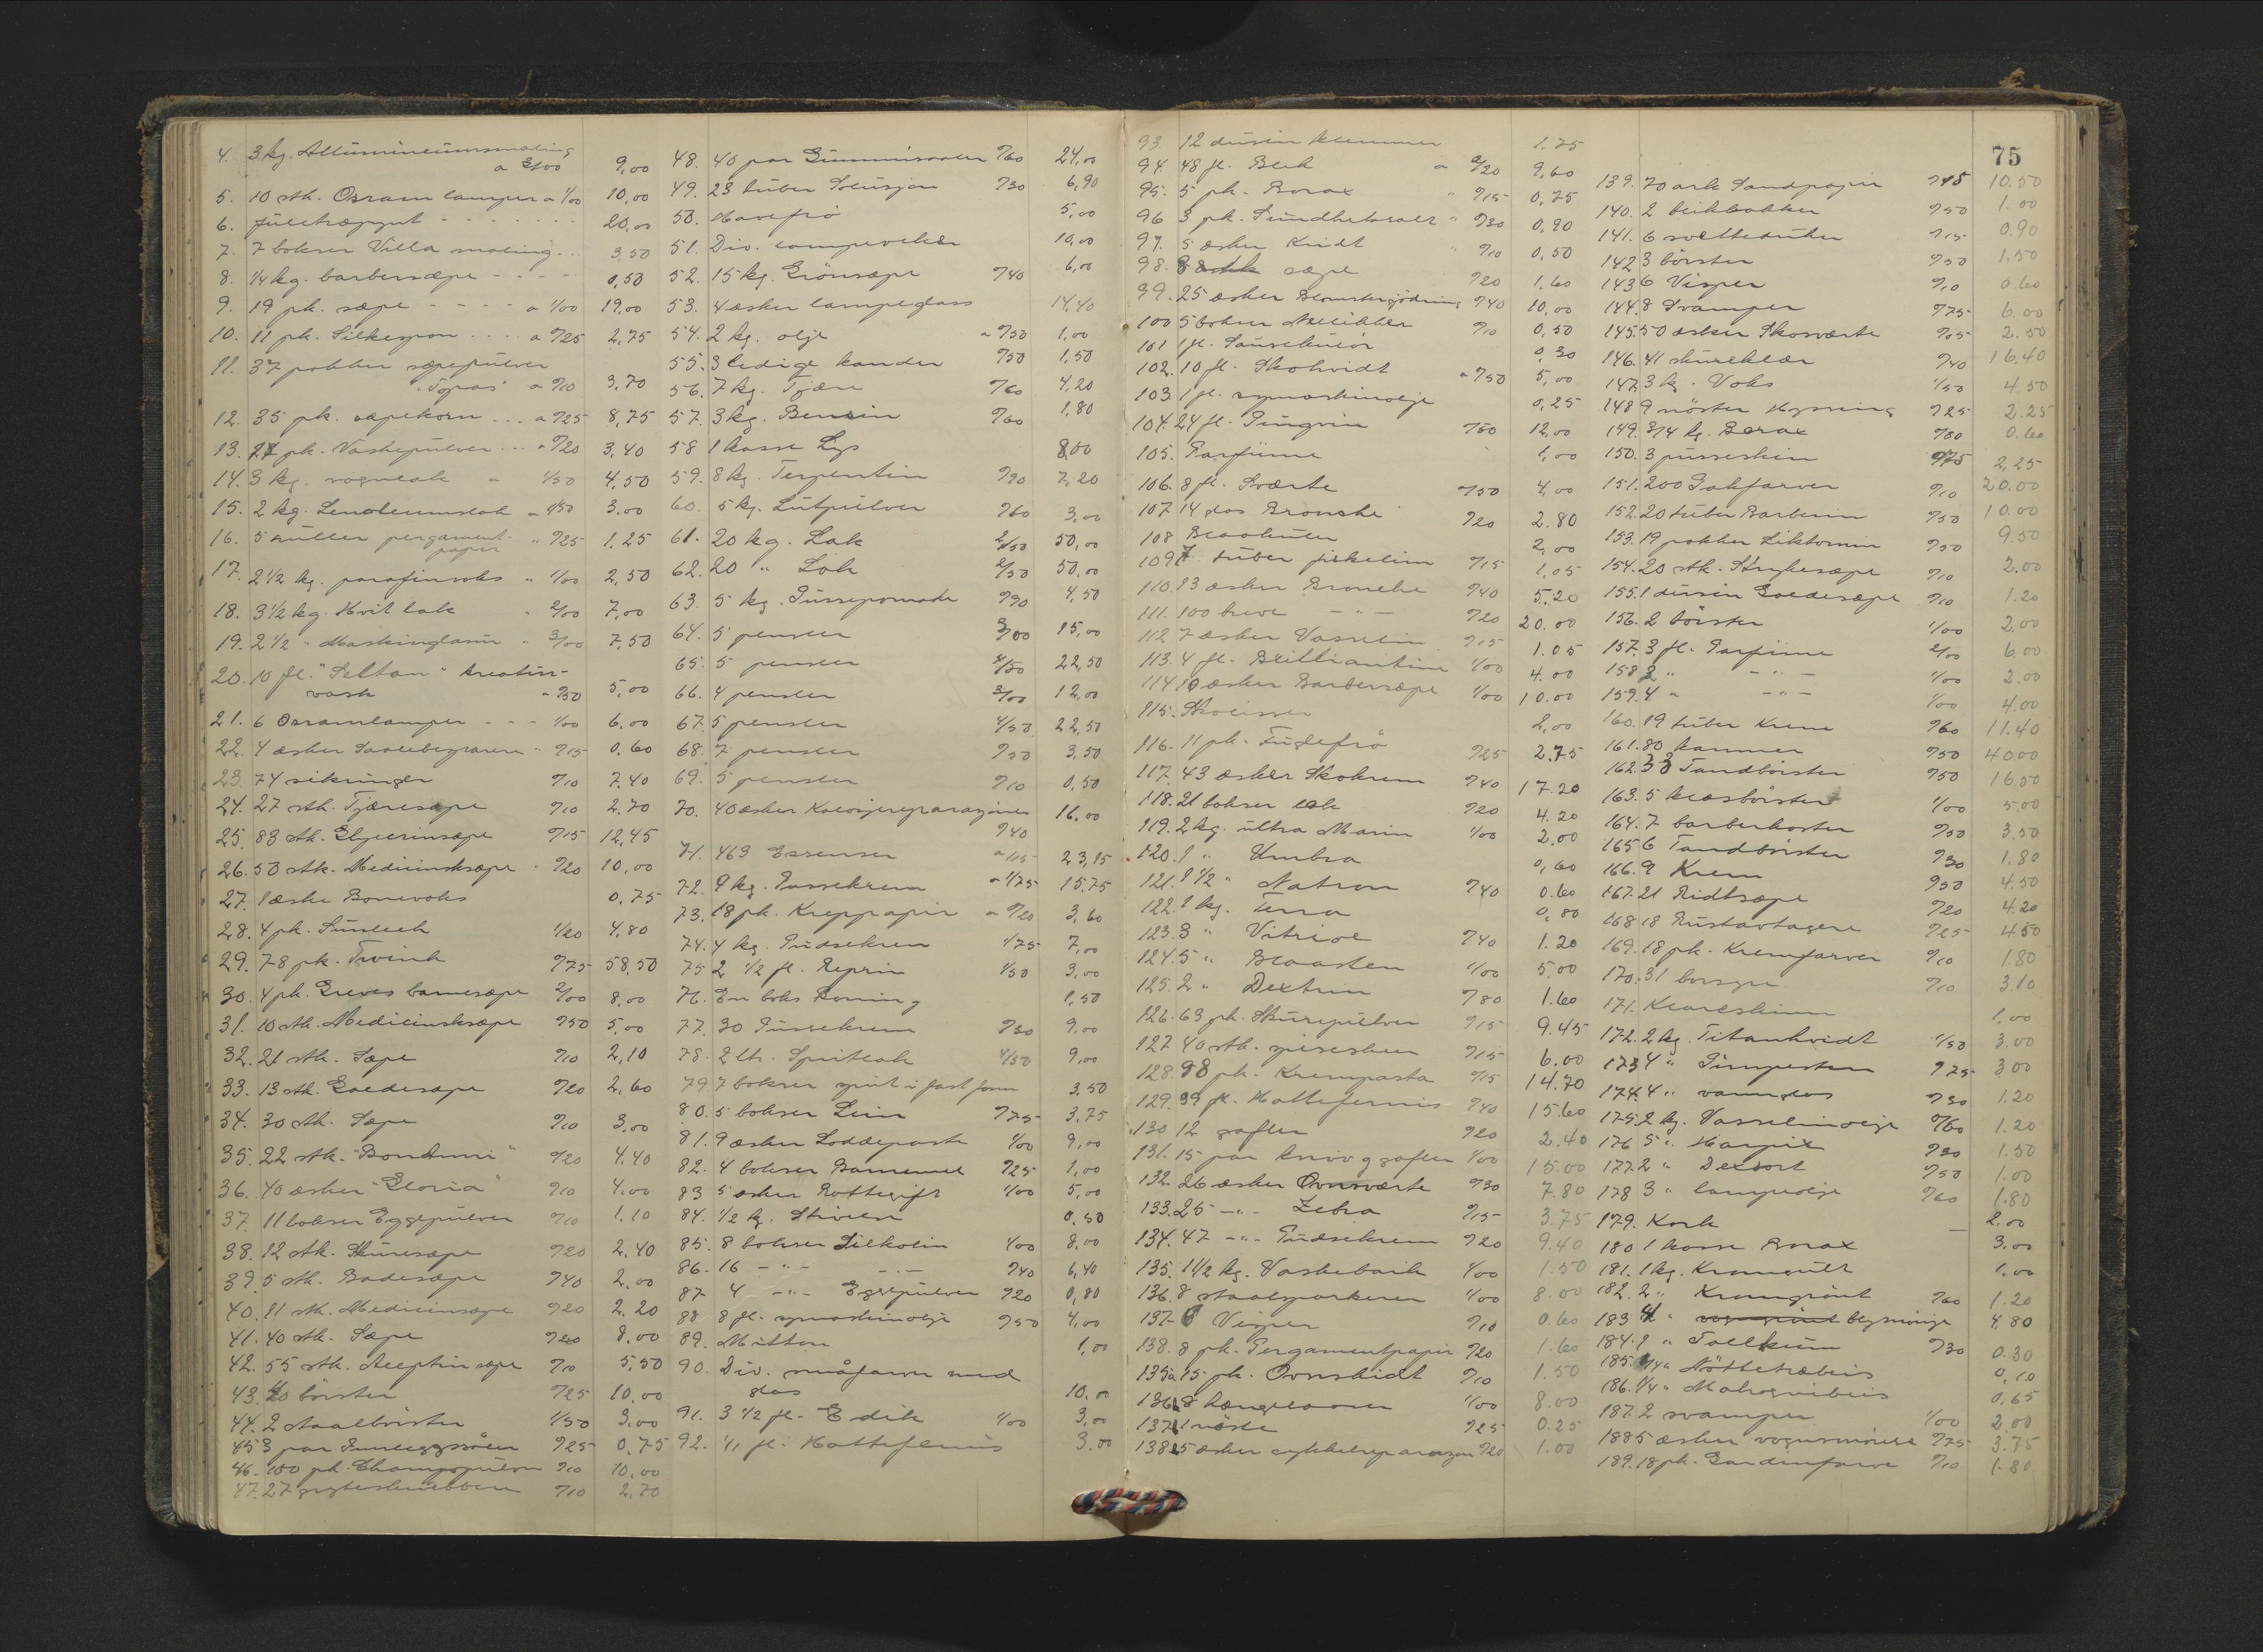 4. 3 kg. Alluminiumsmaling
a 3/00 9,00
5. 10 stk. Osram lamper a 1/00 10,00
6. Juletrepynt - - - - 20,00
7. 7 bokser Villa maling - - 3,50
8. 1/4 kg. barbersæpe - - - - 0,50
9. 19 pk. sæpe - - - - a 1/00 19,00
10. 11 pk. Silkespon - - - a "/25 2,75
11. 37 pakker sæpepulver
"Topas" a "/10 3,70
12. 35 pk. sæpekorn - - - a "/25 8,75
13. 27 pk. Vaskepulver - - - a "/20 3,40
14. 3 kg. vognlak a 1/50 4,50
15. 2 kg. Linoleumslak a 1/50 3,00
16. 5 ruller pergament- " "/25 1,25
papir
17. 2 1/2 kg. parafinvoks " 1/00 2,50
18. 3 1/2 kg. Hvit lak " 2/00 7,00
19. 2 1/2 " Maskinglasur " 3/00 7,50
20. 10 fl. "Seltan" kreatur-
vask a "/50 5,00
21. 6 Osramlamper - - - 1/00 6,00
22. 4 æsker Saalebesparere " "/15 0,60
23. 74 sikringer "/10 7,40
24. 27 stk. Tjæresæpe "/10 2,70
25. 83 stk. Glycerinsæpe "/15 12,45
26. 50 stk. Medicinsksæpe - "/20 10,00
27. 1 æske Bonevoks 0,75
28. 4 pk. Sunlech 1/20 4,80
29. 78 pk. Twink "/75 58,50
30. 4 pk. Greves barnesæpe 2/00 8,00
31. 10 stk. Medicinsksæpe "/50 5,00
32. 21 stk. Sæpe "/10 2,10
33. 13 stk. Goldesæpe "/20 2,60
34. 30 stk. Sæpe "/10 3,00
35. 22 stk. "BonAmi" "/20 4,40
36. 40 æsker "Gloria" "/10 4,00
37. 11 bokser Eggepulver "/10 1,10
38. 12 stk. Skuresæpe "/20 2,40
39. 5 stk. Badesæpe "/40 2,00
40. 11 stk. Medicinsæpe "/20 2,20
41. 40 stk. Sæpe "/20 8,00
42. 55 stk. Aseptin sæpe "/10 5,50
43. 40 börster "/25 10,00
44. 2 staalbörster 1/50 3,00
45 3 par Innleggssåler "/25 0,75
46 - 100 pk. Champopulver "/10 10,00
47. 27 gryteskrubber "/10 2,70
48. 40 par Gummisaaler "/60 24,00
49. 23 tuber Solusjon "/30 6,90
50. Havefrö 5,00
51. Div. lampeveker 10,00
52. 15 kg. Grönsæpe "/40 6,00
53. 4 æsker lampeglass 14,40
54. 2 kg. olje a "/50 1,00
55. 3 ledige kander "/50 1,50
56. 7 kg. Tjære "/60 4,20
57. 3 kg. Bensin "/60 1,80
58 1 kasse Lys 8,00
59. 8 kg. Terpentin "/90 7,20
60. 5 kg. Lutpulver "/60 3,00
61. 20 kg. Lak 2/50 50,00
62. 20 " Lak 2/50 50,00
63. 5 kg. Pussepomade "/90 4,50
64. 5 pensler 3/00 15,00
65. 5 pensler 4/50 22,50
66. 4 pensler 3/00 12,00
67. 5 pensler 4/50 22,50
68. 7 pensler "/50 3,50
69. 5 pensler "/10 0,50
70. 40 æsker Kalosjereparasjoner 16,00
"/40
71. 463 Essenser a "/05 23,15
72. 9 kg. Pussekrem a 1/75 15,75
73. 18 pk. Kreppapir a "/20 3,60
74. 4 kg. Pudsekrem 1/75 7,00
75 2 1/2 fl. Reprin 1/50 3,00
76. En boks Boning 1,50
77. 30 Pussekrem "/30 9,00
78. 2 ltr. Spritlak 4/50 9,00
79 7 bokser sprit i fast form 3,50
80. 5 bokser Leim "/75 3,75
81. 9 æsker Loddepasta 1/00 9,00
82. 4 bokser Barnemel "/25 1,00
83 5 æsker Rottegift 1/00 5,00
84. 1/2 kg. Stivelse 0,50
85. 8 bokser Silkolin 1/00 8,00
86. 16 - " - - " - "/40 6,40
87 4 - " - Eggepulver "/20 0,80
88 8 fl. symaskinolje "/50 4,00
89. Mitten 1,00
90. Div. småfarver med
glas 10,00
91. 3 1/2 fl. Edik 1/00 3,00
92. 1/1 fl. Hattefernis 3,00
93. 12 dusin klemmer 1.75
94. 48 fl. Blek a "/20 9,60
95. 5 pk. Borax " "/15 0,75
96 3 pk. Sundhetssalt " "/30 0,90
97. 5 æsker Kridt "/10 0,50
98. 8 sæpe "/20 1,60
99. 25 æsker Blomstergjödning "/40 10,00
100 5 bokser Nellikker "/10 0,50
101 1 fl. Sauekulör 0,30
102. 10 fl. Skohvidt a "/50 5,00
103 1 fl. symaskinolje 0,25
104. 24 fl. Pingvin "/50 12,00
105. Parfume 1,00
106. 8 fl. Sværte "/50 4,00
107. 14 glas Bronche "/20 2.80
108 Blaakuler 2,00
109 7 tuber fiskelim "/15 1.05
110. 13 æsker Bronche "/40 5.20
111. 100 breve - " - "/20 20.00
112 7 æsker Vasselin "/15 1.05
113. 4 fl. Brilliantine 1/00 4.00
114 10 æsker Barbersæpe 1/00 10.00
115. Skolisser 2,00
116. 11 pk. Fuglefrö "/25 2.75
117. 43 æsker Skokrem "/40 17.20
118. 21 bokser lak "/20 4.20
119. 2 kg. ultra Marin 1/00 2.00
120. 1 " Umbra 0,60
121. 1 1/2 " Natron "/40 0.60
122. 1 kg. Terra 0,80
123. 3 " Vitriol "/40 1.20
124. 5 " Blaasten 1/00 5.00
125. 2 " Dextrin "/80 1.60
126. 63 pk. Skurepulver "/15 9.45
127 40 stk. piresten "/15 6.00
128. 98 pk. Krempasta "/15 14.70
129. 39 fl. Hattefernis "/40 15.60
130 12 gafler "/20 2.40
131. 15 par kniv g gafler 1/00 15.00
132. 26 æsker Ovnsværte "/30 7.80
133. 25 - " - Zebra "/15 3.75
134. 47 - " - Pudsekrem "/20 9.40
135. 1 1/2 kg. Vaskebark 1/00 1.50
136. 8 staalsparkerer 1/00 8.00
137. 6 Visper "/10 0.60
138. 8 pk. Pergamentpapir "/20 1.60
135a 15 pk. Ovnskidt "/10 1.50
136a 8 hængelaaser 1/00 8.00
137a 1 nöste "/25 0.25
138a 5 æsker cykkelreparasjon "/20 1.00
75
139. 70 ark Sandpapir "/15 10.50
140. 2 blikbokker "/50 1.00
141. 6 svettedukker "/15 0.90
142 3 börster "/50 1.50
143 6 Visper "/10 0.60
144. 8 Svamper "/75 6.00
145. 50 æsker Skosværte "/05 2.50
146. 41 skureklær "/40 16.40
147. 3 kg. Voks 1/50 4.50
148 9 nöster Hyssing "/25 2.25
149. 3/4 kg. Borax "/80 0.60
150. 3 pusseskin "/75 2,25
151. 200 Gahfarver "/10 20.00
152. 20 tuber Barberin "/50 10.00
153. 19 pakker Liktornin "/50 9.50
154. 20 stk. Strykesæpe "/10 2.00
155. 1 dusin Goldesæpe "/10 1.20
156. 2 börster 1/00 2,00
157. 3 fl. Parfume 2/00 6.00
158 2 " - " - 1/00 2.00
159. 4 " - " - 1/00 4.00
160. 19 tuber Kreme "/60 11.40
161. 80 kammer "/50 40.00
162. 33 Tandbörster "/50 16.50
163. 5 klæsbörster 1/00 5.00
164. 7 barberkoster "/50 3.50
165 6 Tandbörster "/30 1.80
166. 9 Krem "/50 4.50
167. 21 Ridtsæpe "/20 4.20
168 18 Rustavtagere "/25 4.50
169. 18 pk. Kremfarver "/10 1.80
170. 31 borsyre "/10 3.10
171. Klareskinn 1,00
172. 2 kg. Titanhvidt 1/50 3.00
173 4 " Pimpsten "/75 3.00
174. 4 " vannglas "/30 1.20
175. 2 kg. Vasselinolje "/60 1.20
176 5 " Harpix "/30 1.50
177. 2 " Dexsort "/50 1.00
178 3 " lampeolje "/60 1.80
179. Kork — 2,00
180 1 kasse Borax 3,00
181. 1 kg. Kromgult 1,00
182. 2 " Kromgrönt "/60 1.20
183 4 " blysmönje 4.80
184. 1 " Talkum "/30 0.30
185. 1/4 " Nöttetræbeis 0,10
186. 1/4 " Mahognibeis 0,65
187. 2 svamper 1/00 2,00
188 5 æsker vognsmörelse "/75 3.75
189. 18 pk. Gardinfarve "/10 1.80